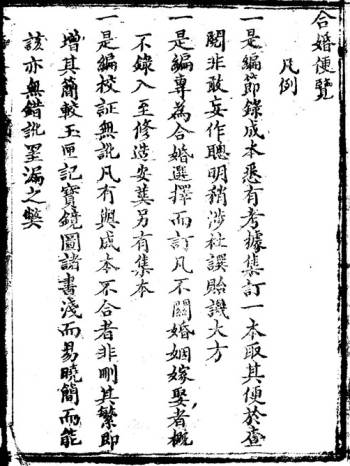 合婚便覽
凡例
一是編節錄成本悉有考據集訂一本取其便於查
閱非敢妄作聰明稍涉杜譔貽譏大方
一是編專為合婚選擇而訂凡不關婚姻嫁娶者概
不錄入至修造安葬另有集本
一是編校証無訛凡有與成本不合者非刪其繁即
增其簡較玉匣記寶鏡圖諸書淺而易曉簡而能
該亦無錯訛罣漏之獘